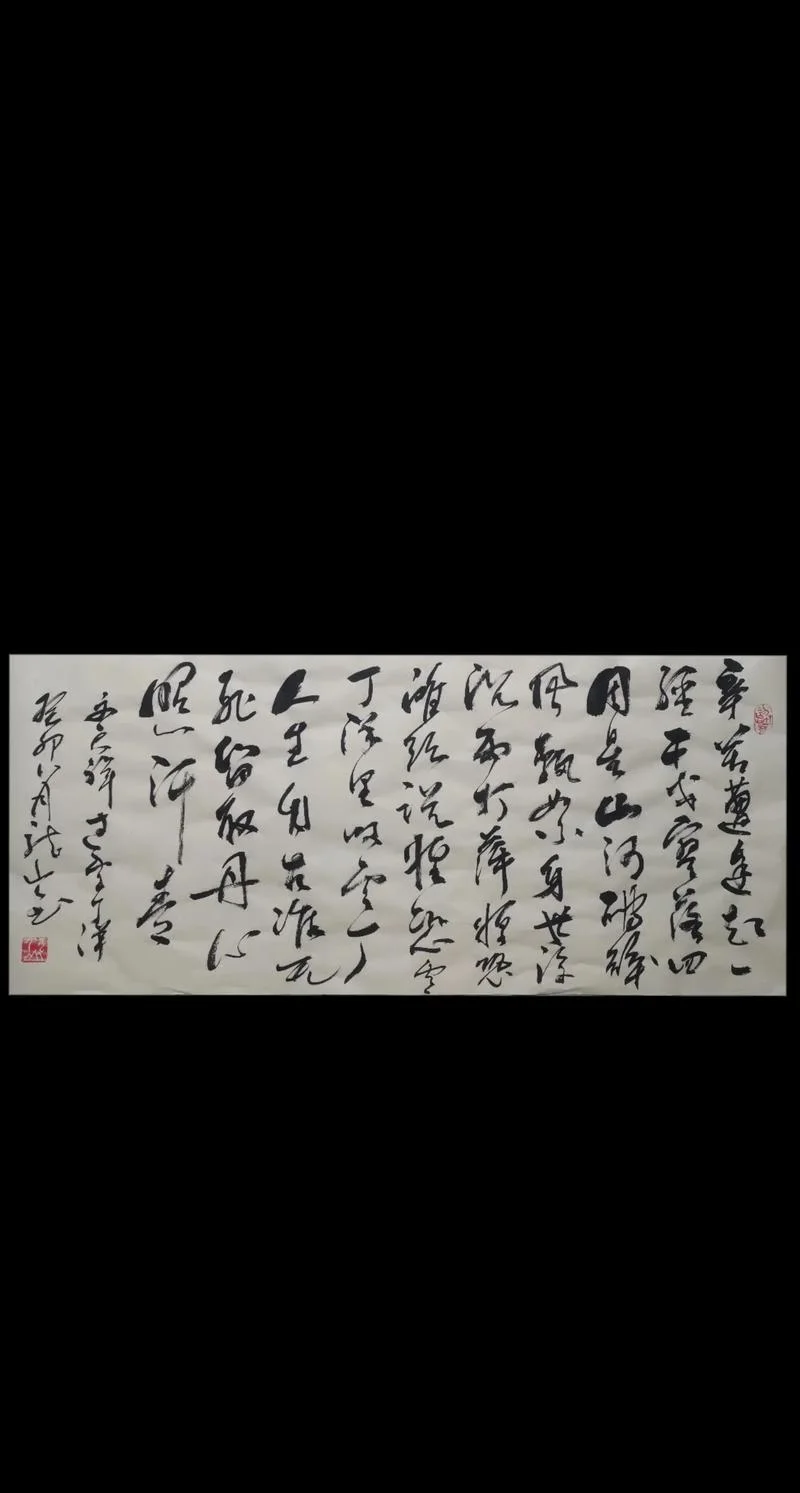 辛苦遭逢起一
經干戈寥落四
周星山河破碎
風飄絮身世浮
沉雨打萍惶恐
灘頭說惶恐零
丁洋里嘆零丁
人生自古誰无
死留取丹心
照汗青
文天祥过零丁洋
癸卯八月 山书